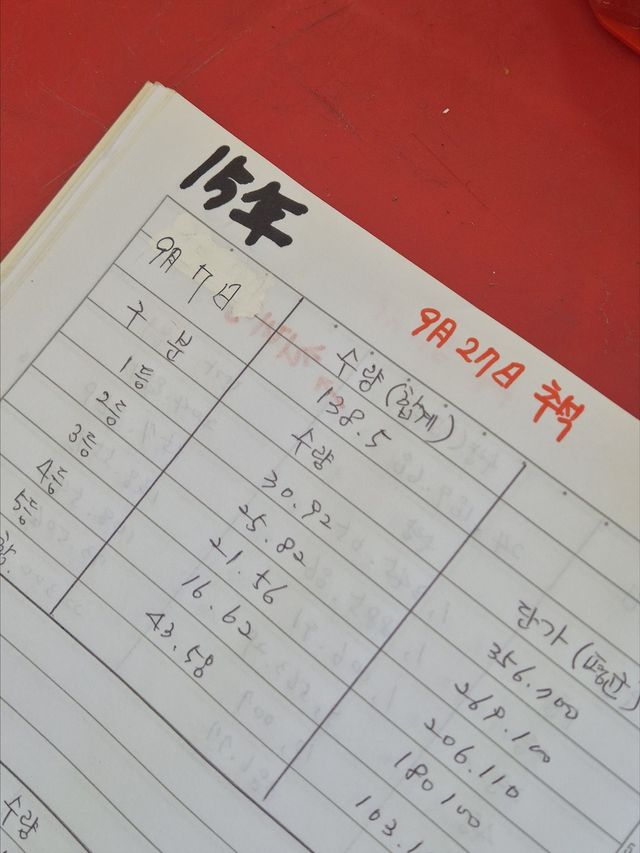 15年
9月27日 추석
9月 7日 수량(합계)
138.5
구 분 수량 단가(평균)
1등 30.92 356.700
2등 25.82 269.100
3등 21.56 206.110
4등 16.62 180100
5등 43.58 103.1
수량